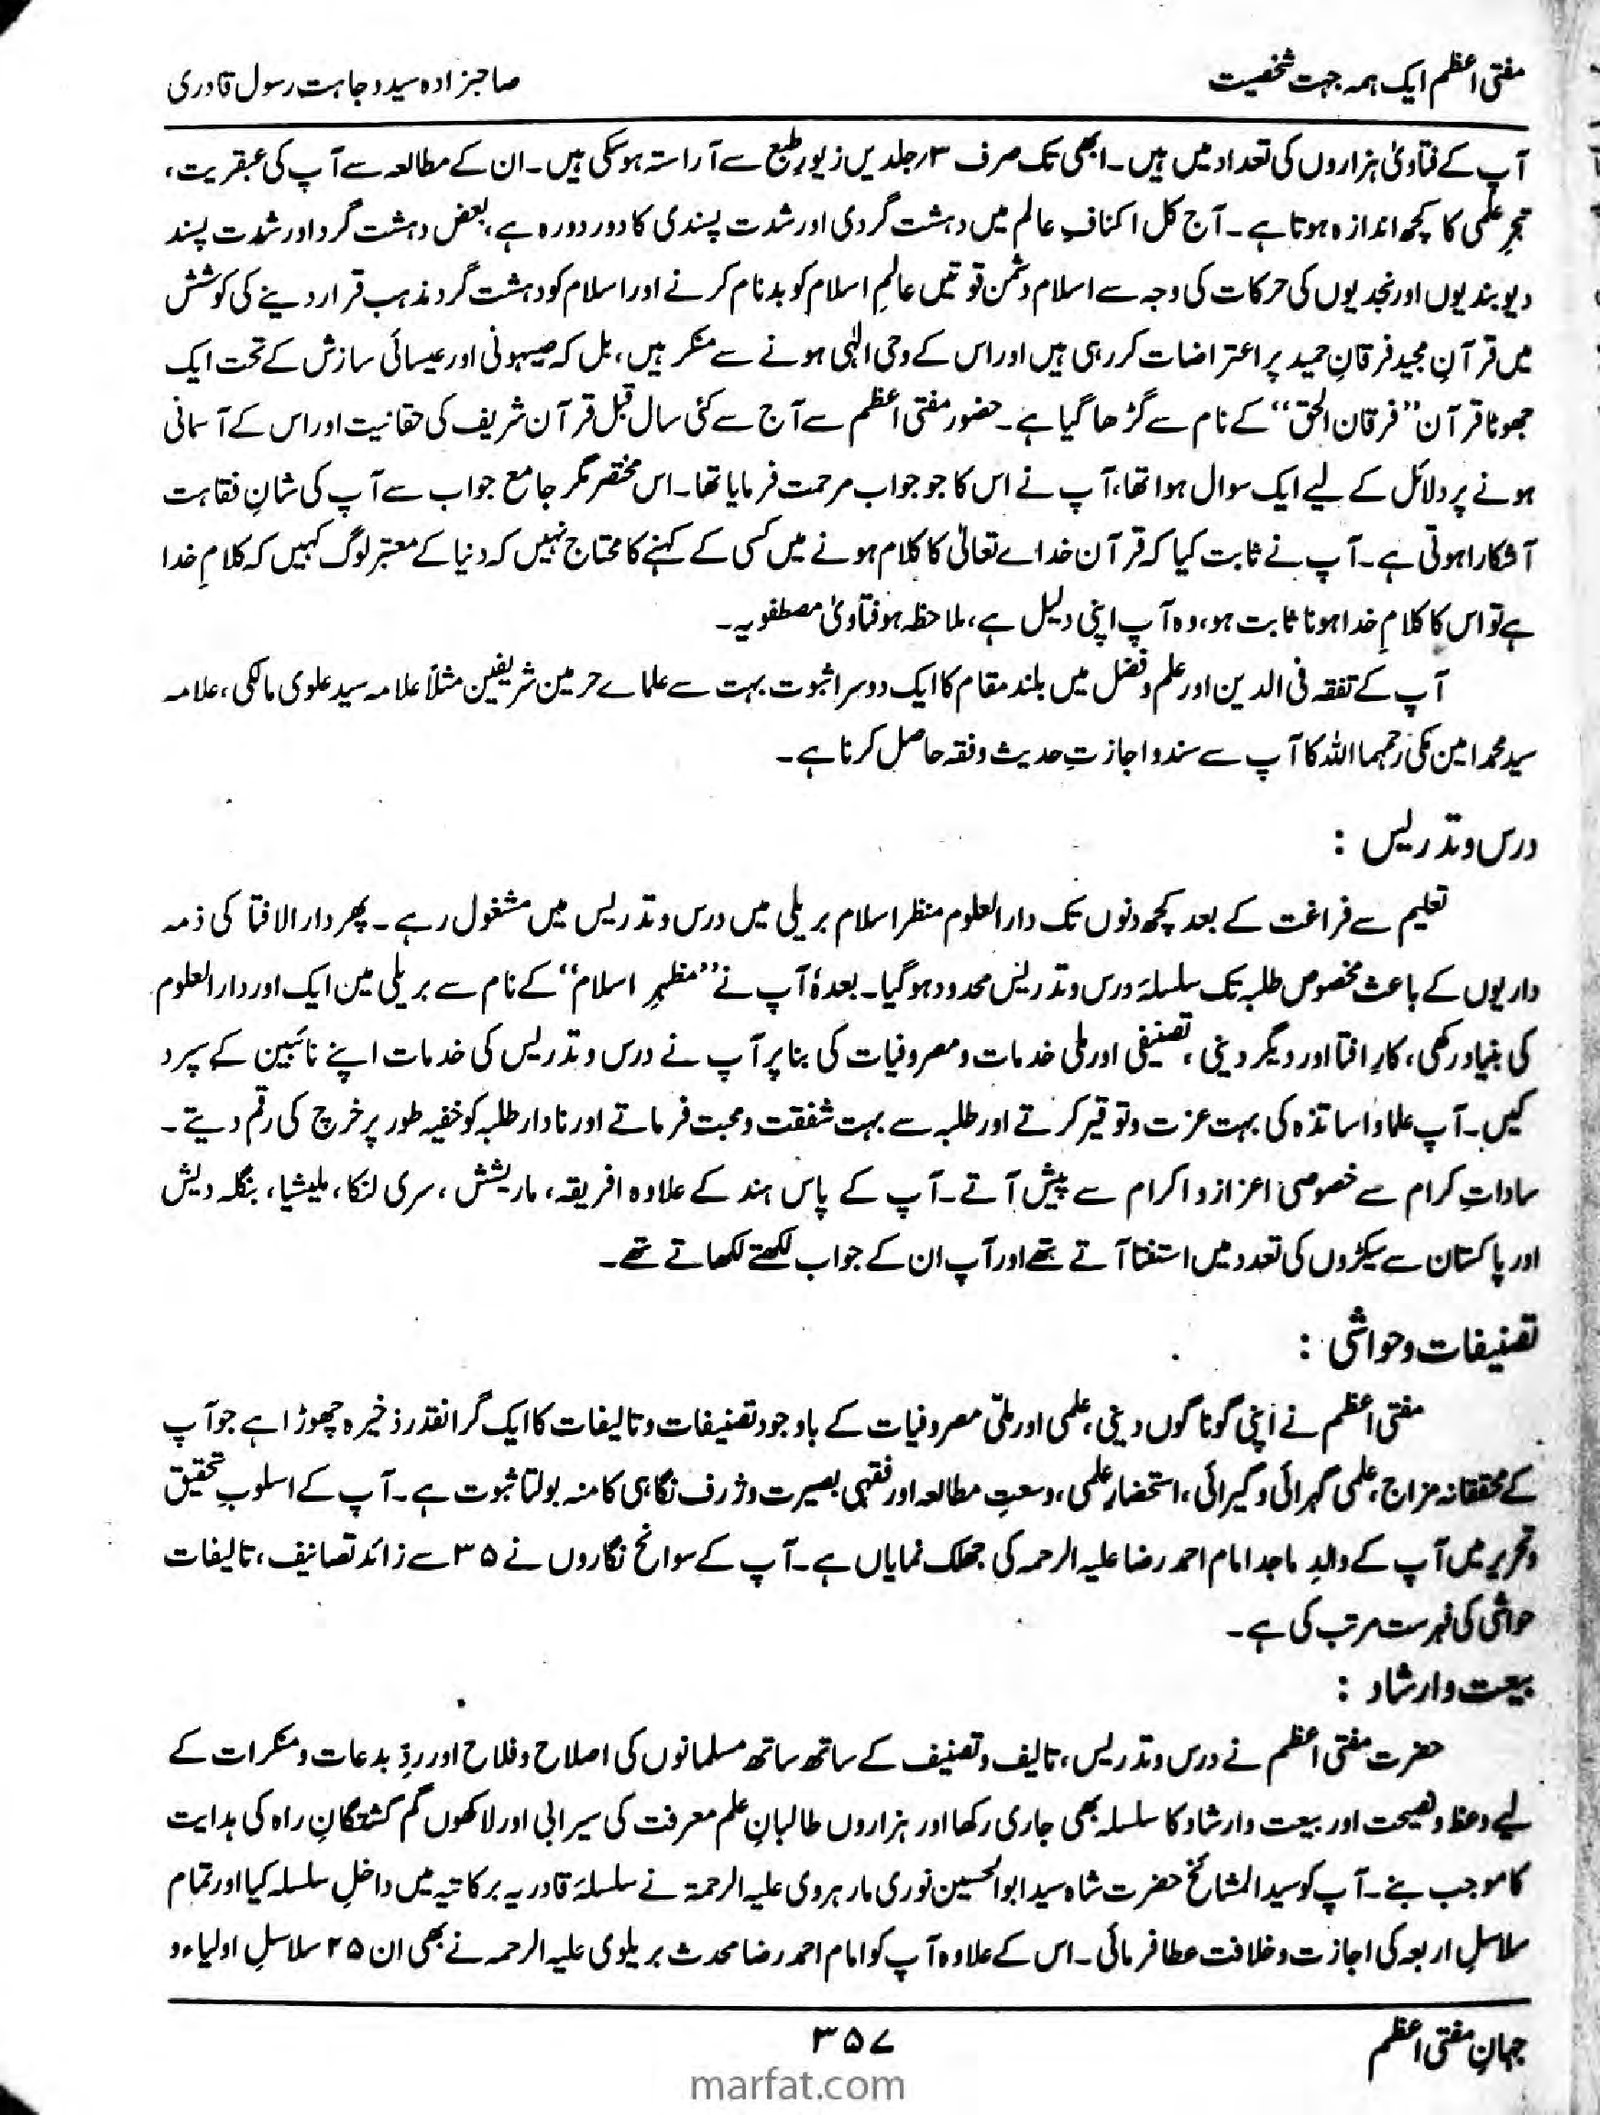 مفتی اعظم ایک ہمہ جہت شخصیت
صاحبزادہ سید وجاہت رسول قادری
آپ کے فتاویٰ ہزاروں کی تعداد میں ہیں۔ ابھی تک صرف ۳؍جلدیں زیورِ طبع سے آراستہ ہوسکی ہیں۔ ان کے مطالعہ سے آپ کی عبقریت،
تبحرِ علمی کا کچھ اندازہ ہوتا ہے۔ آج کل اکنافِ عالم میں دہشت گردی اور شدت پسندی کا دور دورہ ہے، بعض دہشت گرد اور شدت پسند
دیوبندیوں اور نجدیوں کی حرکات کی وجہ سے اسلام دشمن قوتیں عالمِ اسلام کو بدنام کرنے اور اسلام کو دہشت گرد مذہب قرار دینے کی کوشش
میں قرآنِ مجید فرقانِ حمید پر اعتراضات کررہی ہیں اور اس کے وحی الٰہی ہونے سے منکر ہیں، بل کہ صیہونی اور عیسائی سازش کے تحت ایک
جھوٹا قرآن ”فرقان الحق“ کے نام سے گڑھا گیا ہے۔ حضور مفتی اعظم سے آج سے کئی سال قبل قرآن شریف کی حقانیت اور اس کے آسمانی
ہونے پر دلائل کے لیے ایک سوال ہوا تھا، آپ نے اس کا جو جواب مرحمت فرمایا تھا۔ اس مختصر مگر جامع جواب سے آپ کی شانِ فقاہت
آشکارا ہوتی ہے۔ آپ نے ثابت کیا کہ قرآن خداے تعالیٰ کا کلام ہونے میں کسی کے کہنے کا محتاج نہیں کہ دنیا کے معتبر لوگ کہیں کہ کلامِ خدا
ہے تو اس کا کلامِ خدا ہونا ثابت ہو، وہ آپ اپنی دلیل ہے، ملاحظہ ہو فتاویٰ مصطفویہ۔
آپ کے تفقہ فی الدین اور علم وفضل میں بلند مقام کا ایک دوسرا ثبوت بہت سے علماے حرمین شریفین مثلاً علامہ سید علوی مالکی، علامہ
سید محمد امین مکی رحمہما اللہ کا آپ سے سند و اجازتِ حدیث وفقہ حاصل کرنا ہے۔
درس و تدریس :
تعلیم سے فراغت کے بعد کچھ دنوں تک دارالعلوم منظر اسلام بریلی میں درس و تدریس میں مشغول رہے۔ پھر دارالافتا کی ذمہ
داریوں کے باعث مخصوص طلبہ تک سلسلۂ درس و تدریس محدود ہوگیا۔ بعدہٗ آپ نے ”مظہرِ اسلام“ کے نام سے بریلی میں ایک اور دارالعلوم
کی بنیاد رکھی، کارِ افتا اور دیگر دینی، تصنیفی اور ملی خدمات و مصروفیات کی بنا پر آپ نے درس و تدریس کی خدمات اپنے نائبین کے سپرد
کیں۔ آپ علما و اساتذہ کی بہت عزت و توقیر کرتے اور طلبہ سے بہت شفقت و محبت فرماتے اور نادار طلبہ کو خفیہ طور پر خرچ کی رقم دیتے۔
ساداتِ کرام سے خصوصی اعزاز و اکرام سے پیش آتے۔ آپ کے پاس ہند کے علاوہ افریقہ، ماریشش، سری لنکا، ملیشیا، بنگلہ دیش
اور پاکستان سے سیکڑوں کی تعدد میں استفتا آتے تھے اور آپ ان کے جواب لکھتے لکھاتے تھے۔
تصنیفات و حواشی :
مفتی اعظم نے اپنی گونا گوں دینی، علمی اور ملّی مصروفیات کے باوجود تصنیفات و تالیفات کا ایک گرانقدر ذخیرہ چھوڑا ہے جو آپ
کے محققانہ مزاج، علمی گہرائی و گیرائی، استحضارِ علمی، وسعتِ مطالعہ اور فقہی بصیرت و ژرف نگاہی کا منہ بولتا ثبوت ہے۔ آپ کے اسلوبِ تحقیق
و تحریر میں آپ کے والدِ ماجد امام احمد رضا علیہ الرحمہ کی جھلک نمایاں ہے۔ آپ کے سوانح نگاروں نے ۳۵ سے زائد تصانیف، تالیفات
حواشی کی فہرست مرتب کی ہے۔
بیعت و ارشاد :
حضرت مفتی اعظم نے درس و تدریس، تالیف و تصنیف کے ساتھ ساتھ مسلمانوں کی اصلاح و فلاح اور ردِّ بدعات و منکرات کے
لیے وعظ و نصیحت اور بیعت و ارشاد کا سلسلہ بھی جاری رکھا اور ہزاروں طالبانِ علم معرفت کی سیرابی اور لاکھوں گم گشتگانِ راہ کی ہدایت
کا موجب بنے۔ آپ کو سید المشائخ حضرت شاہ سید ابوالحسین نوری مارہروی علیہ الرحمۃ نے سلسلۂ قادریہ برکاتیہ میں داخلِ سلسلہ کیا اور تمام
سلاسلِ اربعہ کی اجازت و خلافت عطا فرمائی۔ اس کے علاوہ آپ کو امام احمد رضا محدث بریلوی علیہ الرحمہ نے بھی ان ۲۵ سلاسلِ اولیاء و
جہانِ مفتی اعظم
۳۵۷
marfat.com